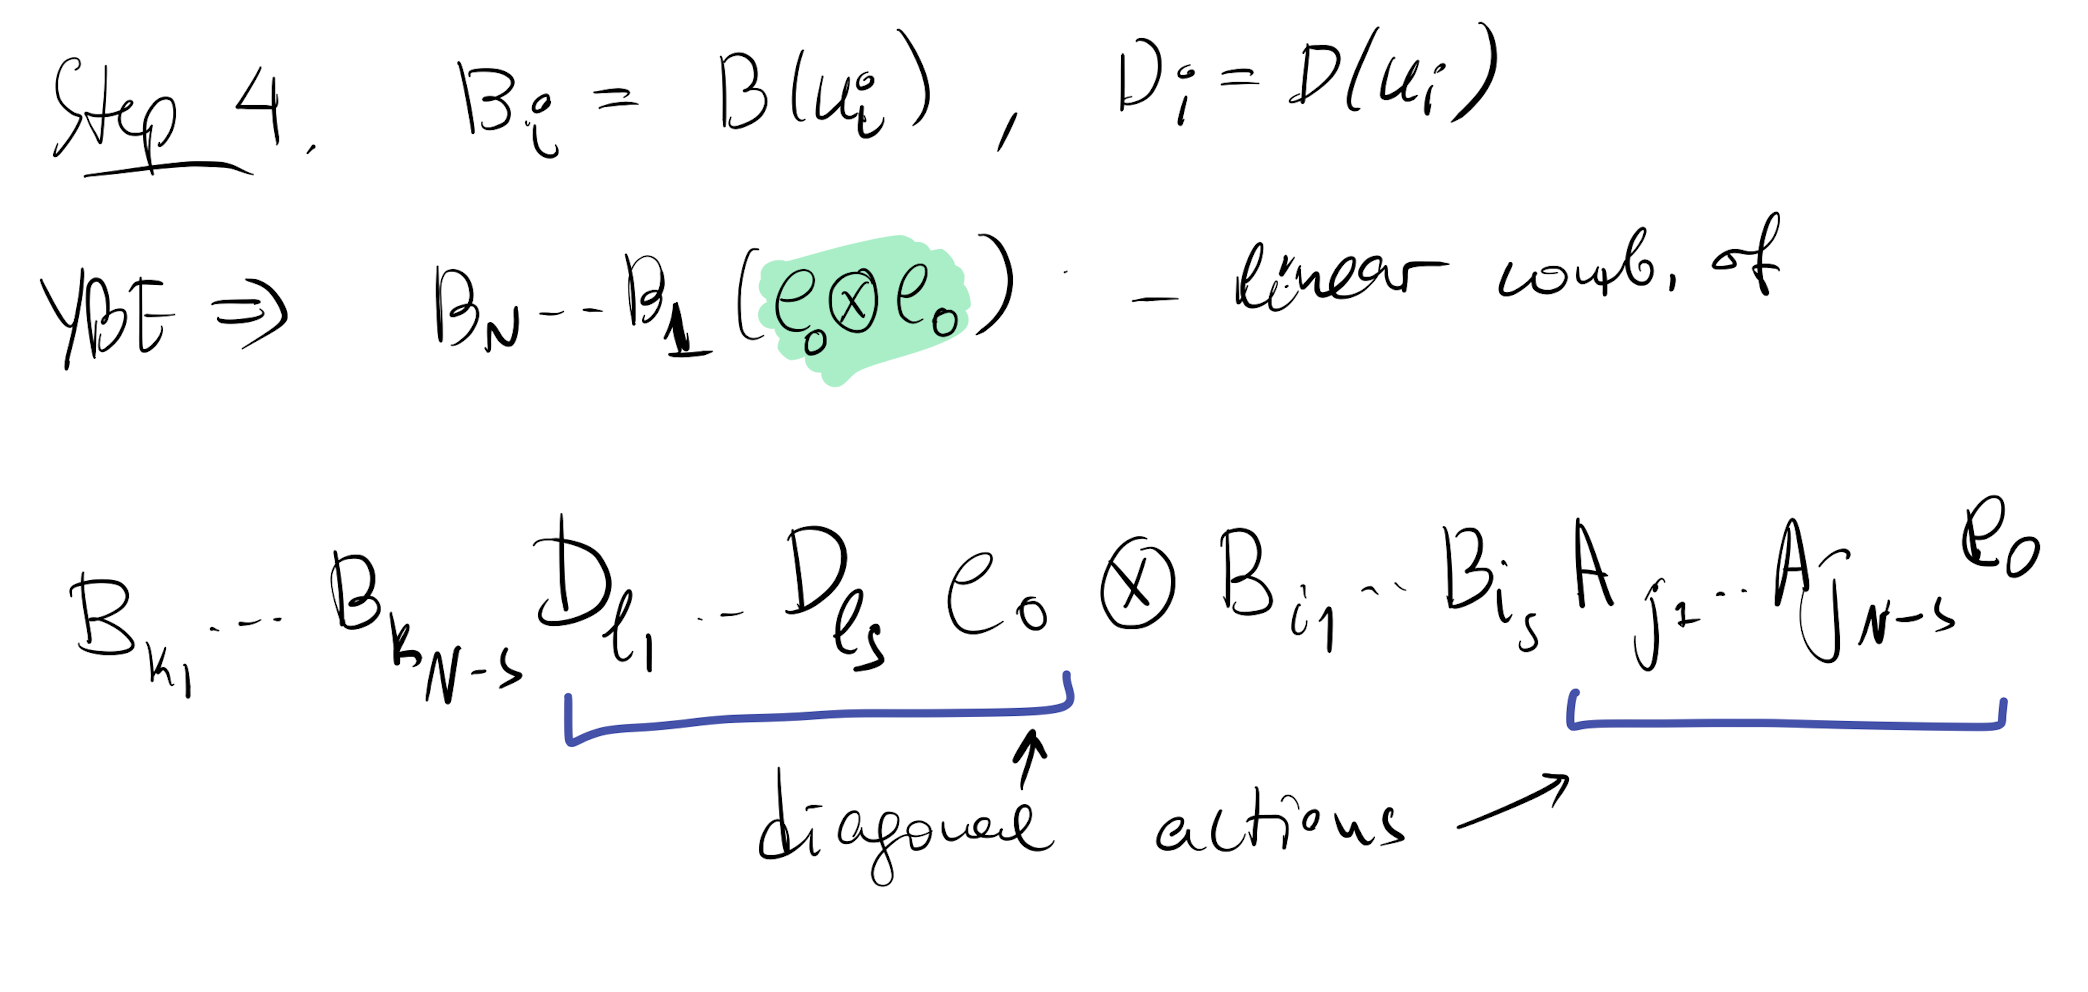 Step 4. B_i = B(u_i), D_i = D(u_i)
YBE ⇒ B_N -- B_1 (e_0 ⊗ e_0) - linear comb. of
B_{k_1} ... B_{k_{N-s}} D_{l_1} ... D_{l_s} e_0 ⊗ B_{i_1} ... B_{i_s} A_{j_1} ... A_{j_{N-s}} e_0
diagonal actions